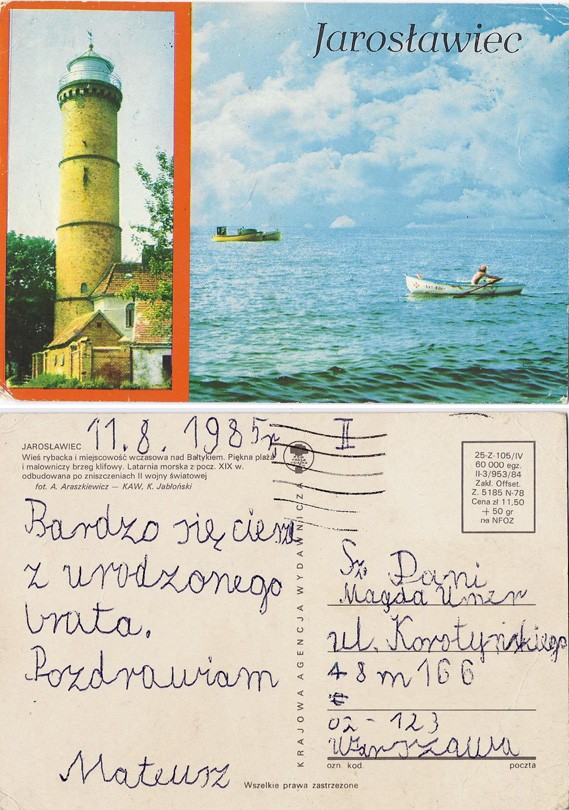 Jarosławiec
11.8.1985r
II
JAROSŁAWIEC
Wieś rybacka i miejscowość wczasowa nad Bałtykiem. Piękna plaża
i malowniczy brzeg klifowy. Latarnia morska z pocz. XIX w.
odbudowana po zniszczeniach II wojny światowej
fot. A. Araszkiewicz — KAW, K. Jabłoński
Bardzo się ciesz
z urodzonego
brata.
Pozdrawiam
Mateusz
KRAJOWA AGENCJA WYDAWNICZA
25-Z-105/IV
60 000 egz.
II-3/953/84
Zakł. Offset.
Z. 5185 N-78
Cena zł 11,50
+ 50 gr
na NFOZ
Sz. Pani
Magda Umer
ul. Korotyńskiego
48 m 166
02-123
Warszawa
ozn. kod. poczta
Wszelkie prawa zastrzeżone